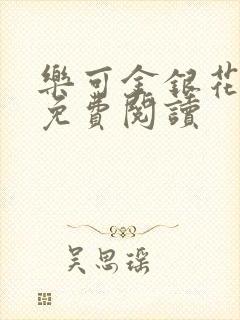 樂可金銀花
免費閱讀
吴思瑶